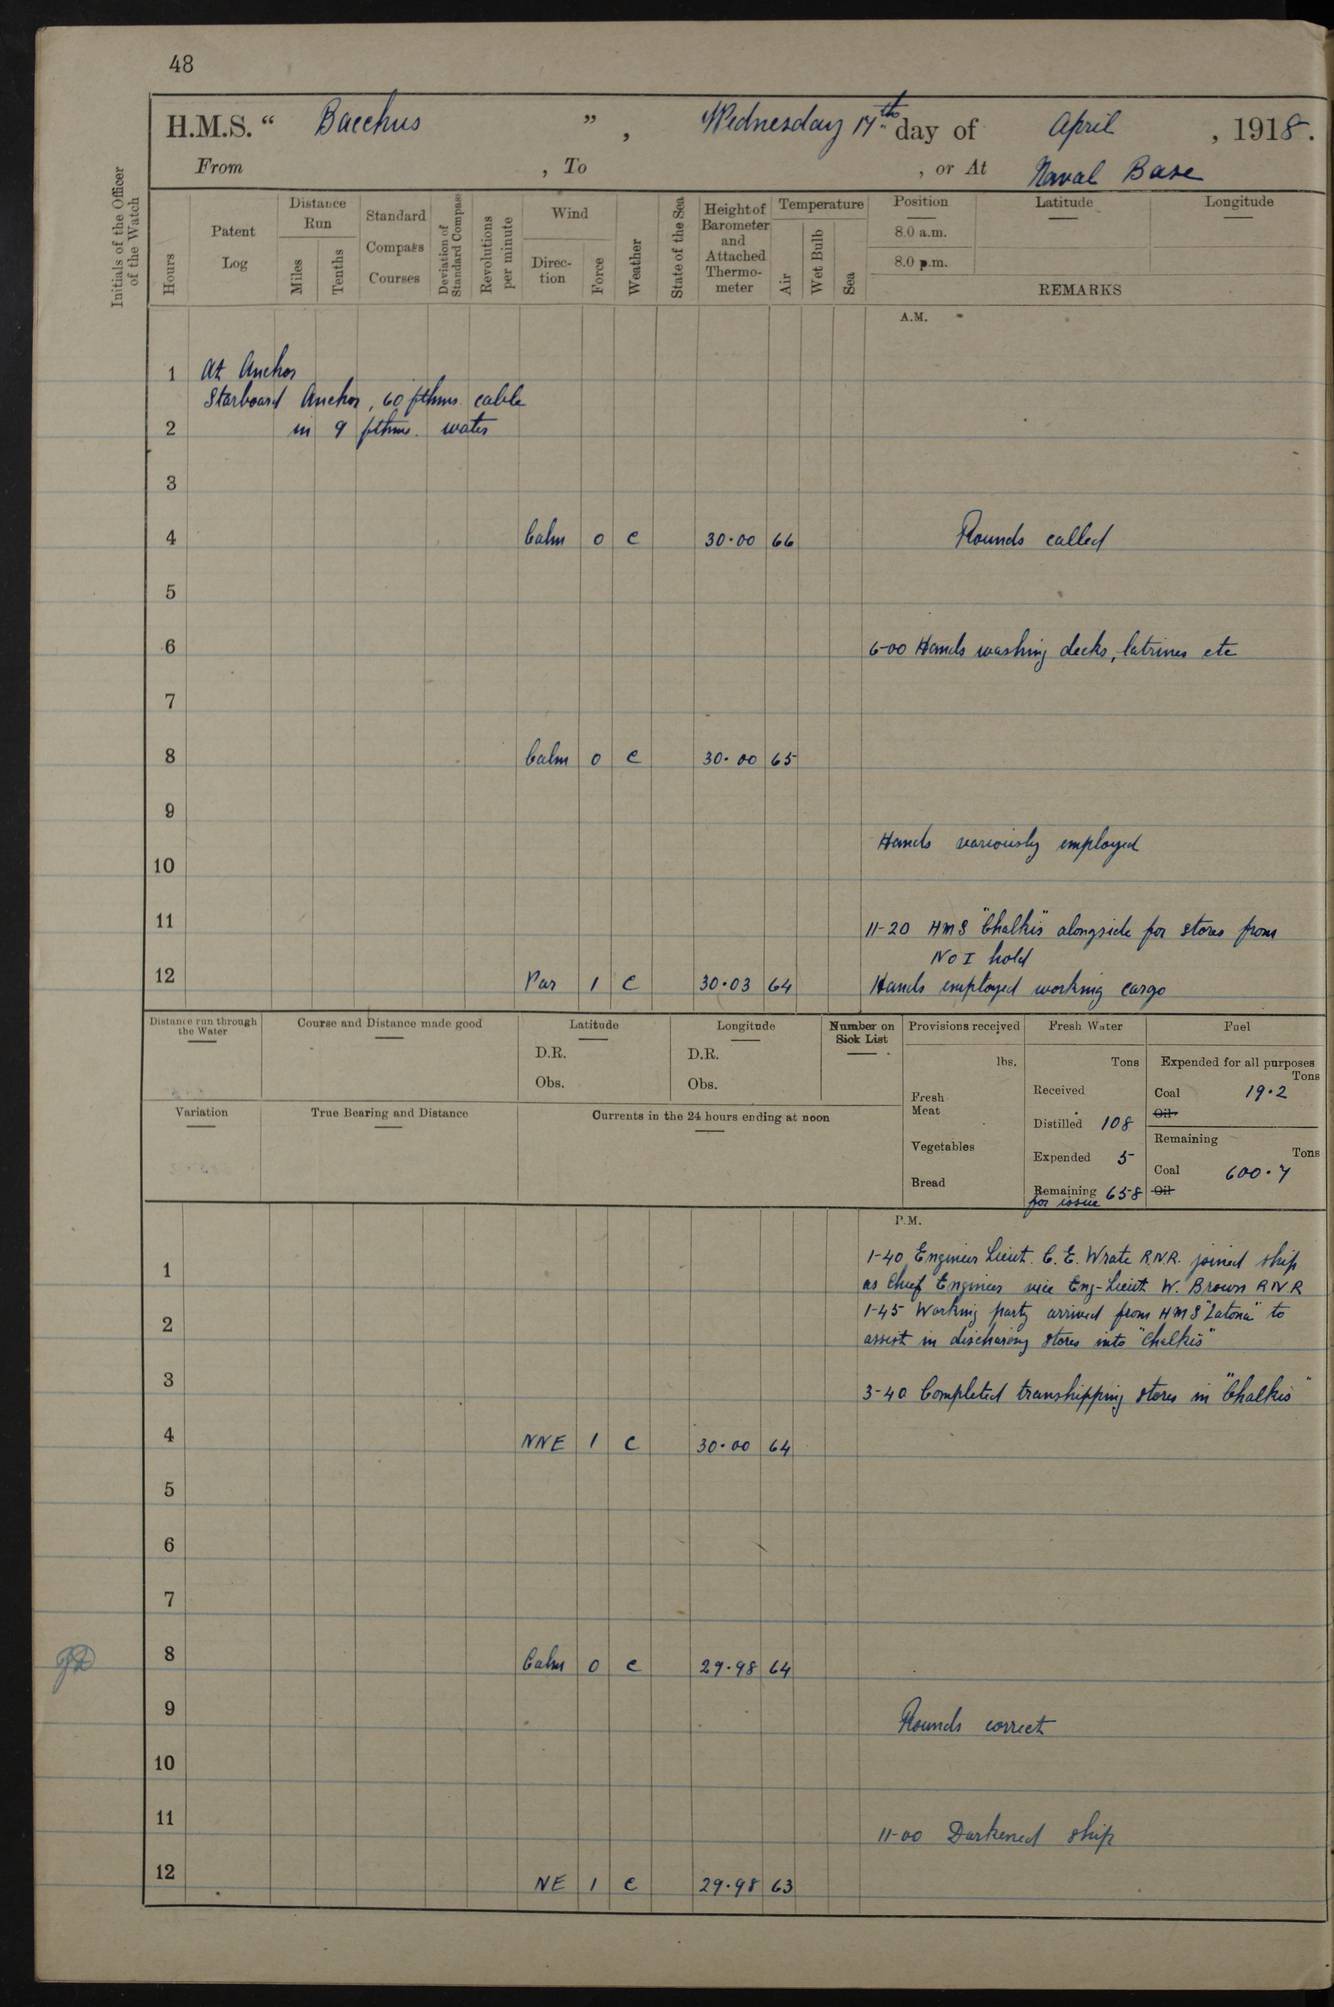 48
H.M.S. “ Bacchus ”, Wednesday 17th day of April, 1918.
From , To , or At Naval Base
Initials of the Officer of the Watch
Hours
Patent Log
Distance Run
Miles
Tenths
Standard Compass Courses
Deviation of Standard Compass
Revolutions per minute
Wind
Direction
Force
Weather
State of the Sea
Height of Barometer and Attached Thermometer
Temperature
Air
Wet Bulb
Sea
Position
8.0 a.m.
8.0 p.m.
Latitude
Longitude
REMARKS
A.M.
1 At Anchor
Starboard Anchor, 60 fthms. cable
2 in 9 fthms. water
3
4 Calm 0 c 30.00 66 Rounds called
5
6 6-00 Hands washing decks, latrines etc
7
8 Calm 0 c 30.00 65
9
Hands variously employed
10
11 11-20 HMS "Chalkis" alongside for stores from
No I hold
12 Var 1 c 30.03 64 Hands employed working cargo
Distance run through the Water
Course and Distance made good
Latitude
D.R.
Obs.
Longitude
D.R.
Obs.
Number on Sick List
Provisions received
lbs.
Fresh Meat
Vegetables
Bread
Fresh Water
Tons
Received
Distilled 108
Expended 5
Remaining 658
for issue
Fuel
Expended for all purposes
Tons
Coal 19.2
Oil
Remaining
Tons
Coal 600.7
Oil
Variation
True Bearing and Distance
Currents in the 24 hours ending at noon
P.M.
1-40 Engineer Lieut. C. E. Wrate R.N.R. joined ship
1 as Chief Engineer vice Eng-Lieut W. Brown RNR
1-45 Working party arrived from HMS "Latona" to
2 assist in discharging stores into "Chalkis"
3 3-40 Completed transhipping stores in "Chalkis"
4 NNE 1 c 30.00 64
5
6
7
8 Calm 0 c 29.98 64
9 Rounds correct
10
11 11-00 Darkened ship
12 NE 1 c 29.98 63